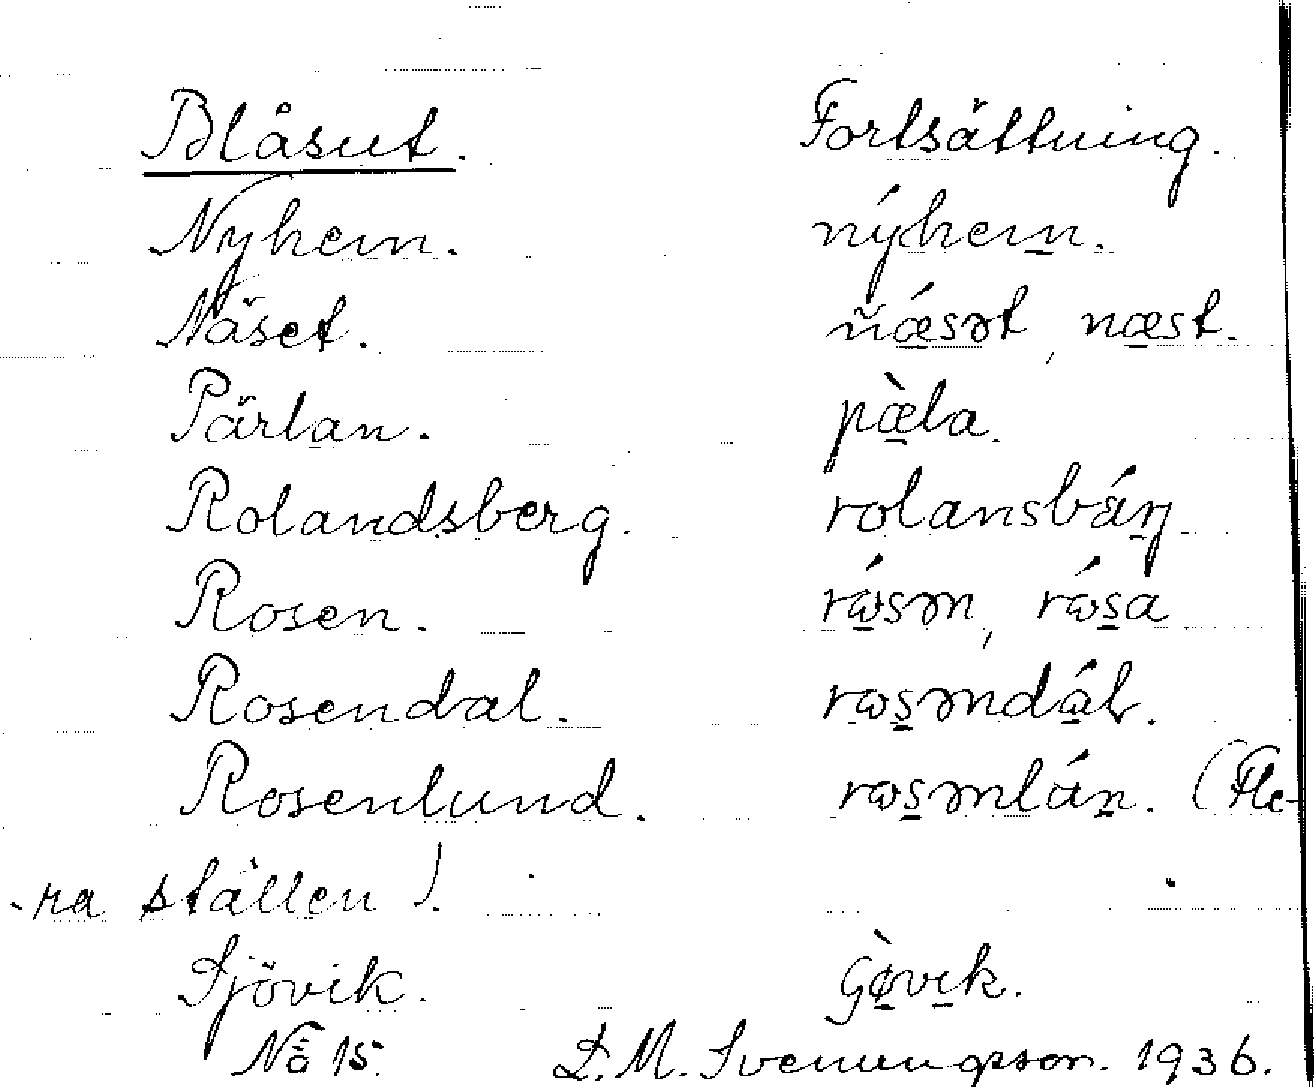 Blåsut. Fortsättning.
Nyhem. nýhem̲.
Näset. nǽ̲sət, næ̲st.
Pärlan. pæ̲̀la.
Rolandsberg. rolansbáŋ
Rosen. rɷ̲́sən, rɷ́s̲a
Rosendal. rɷs̲əndá̲l.
Rosenlund. rɷs̲ənlán̲. (Fle-
-ra ställen).
Sjövik. ø̲̀vi̲k.
No 15. D. M. Svenungsson. 1936.